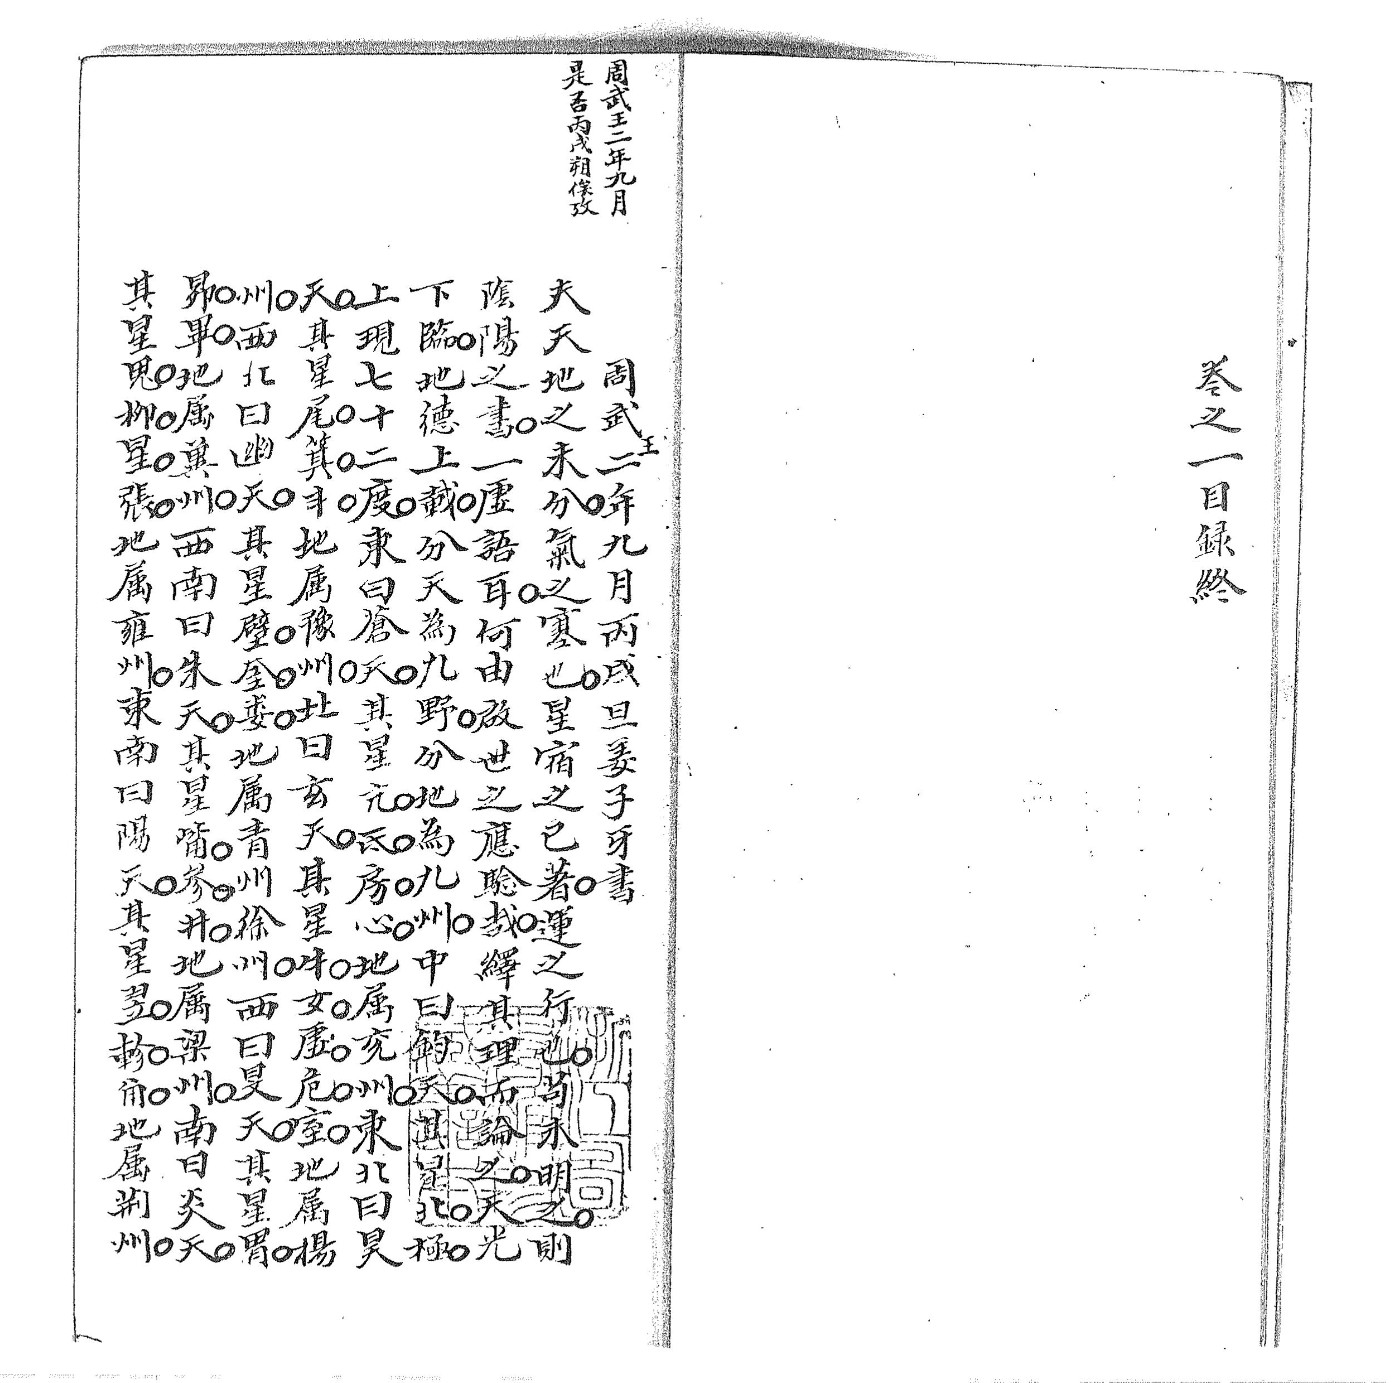 卷之一目録終
周武王二年九月
是否丙戌朔俟攷
周武王二年九月丙戌旦姜子牙書
夫天地之未分氣之塞也星宿之已著運之行也苟未明之則
陰陽之書一虛語耳何由啟世之應驗哉繹其理而論之天光
下臨地德上載分天為九野分地為九州中曰鈞天其星北極
上現七十二度東曰蒼天其星亢氐房心地属兗州東北曰昊
天其星尾箕斗地属豫州北曰玄天其星牛女虛危室地属揚
州西北曰幽天其星壁奎婁地属青州徐州西曰旻天其星胃
昴畢地属冀州西南曰朱天其星嘴參井地属梁州南曰炎天
其星鬼柳星張地属雍州東南曰陽天其星翌軫角地属荆州